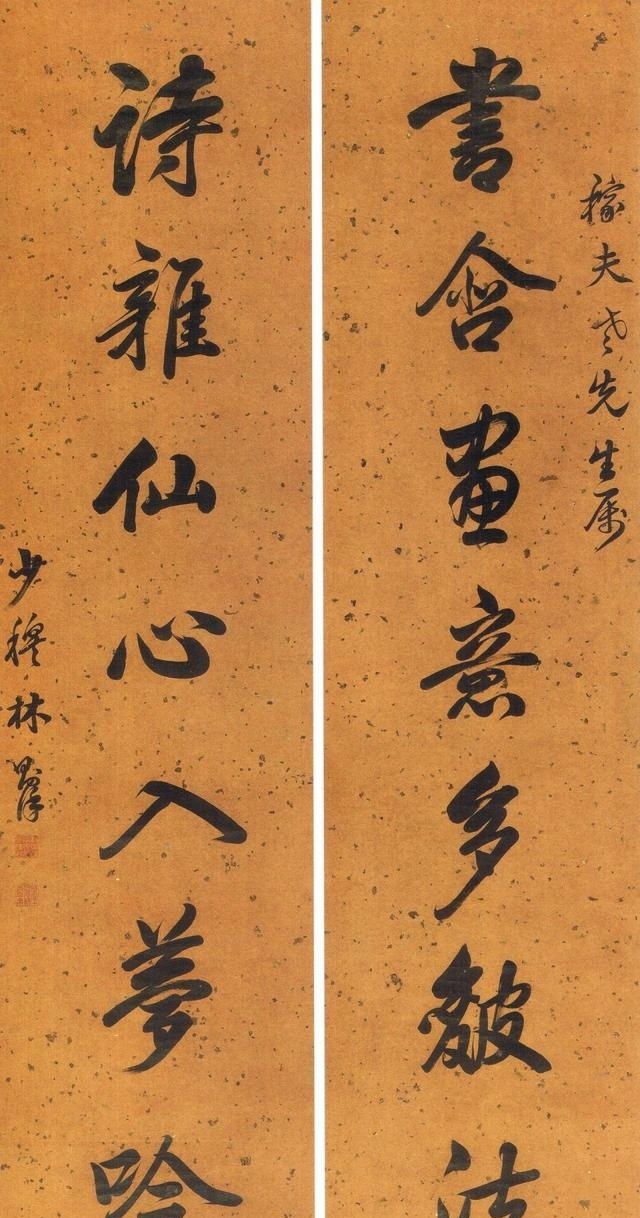 稼夫老先生属
書含畫意多皴法
詩雜仙心入夢吟
少穆林則徐